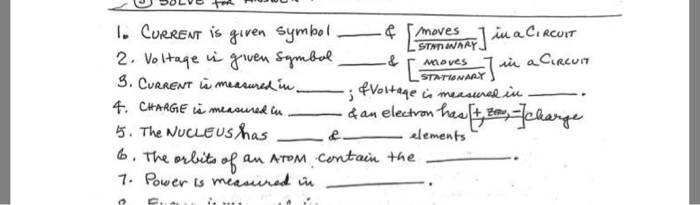 SOLVE FOR ANSWER
1. CURRENT is given symbol ___ & [moves / STATIONARY] in a CIRCUIT
2. Voltage is given symbol ___ & [moves / STATIONARY] in a CIRCUIT
3. CURRENT is measured in ___; & Voltage is measured in ___.
4. CHARGE is measured in ___ & an electron has [+, zero, -] charge
5. The NUCLEUS has ___ & ___ elements
6. The orbits of an ATOM contain the ___.
7. Power is measured in ___.